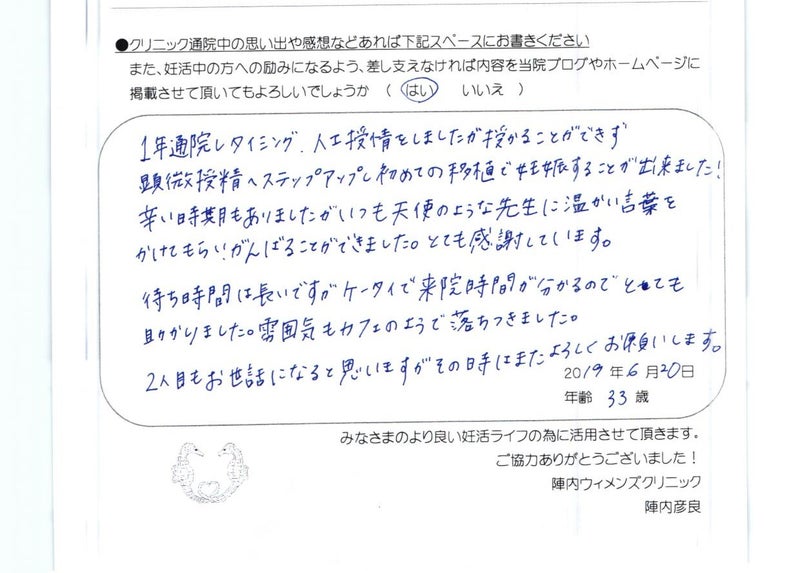 ●クリニック通院中の思い出や感想などあれば下記スペースにお書きください
また、妊活中の方への励みになるよう、差し支えなければ内容を当院ブログやホームページに
掲載させて頂いてもよろしいでしょうか （ はい いいえ ）
1年通院しタイミング、人工授精をしましたが授かることができず
顕微授精へステップアップし初めての移植で妊娠することが出来ました!
辛い時期もありましたがいつも天使のような先生に温かい言葉を
かけてもらいがんばることができました。とても感謝しています。
待ち時間は長いですがケータイで来院時間が分かるのでとても
助かりました。雰囲気もカフェのようで落ちつきました。
2人目もお世話になると思いますがその時はまたよろしくお願いします。
2019年6月20日
年齢 33歳
みなさまのより良い妊活ライフの為に活用させて頂きます。
ご協力ありがとうございました！
陣内ウィメンズクリニック
陣内彦良